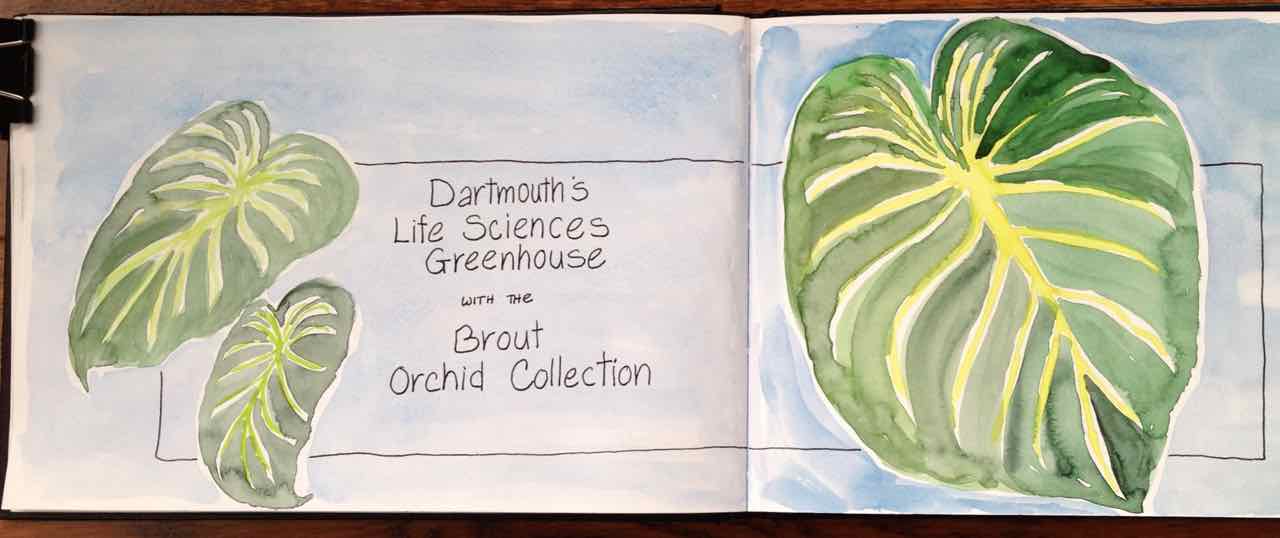 Dartmouth's
Life Sciences
Greenhouse
WITH THE
Brout
Orchid Collection